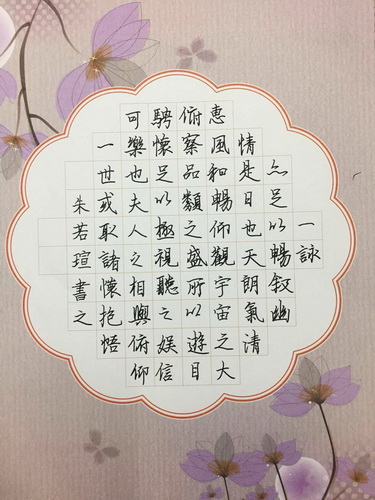 一詠
亦足以暢叙幽
情是日也天朗氣清
惠風和暢仰觀宇宙之大
俯察品類之盛所以遊目
騁懷足以極視聽之娱信
可樂也夫人之相與俯仰
一世或取諸懷抱悟
朱若瑄書之